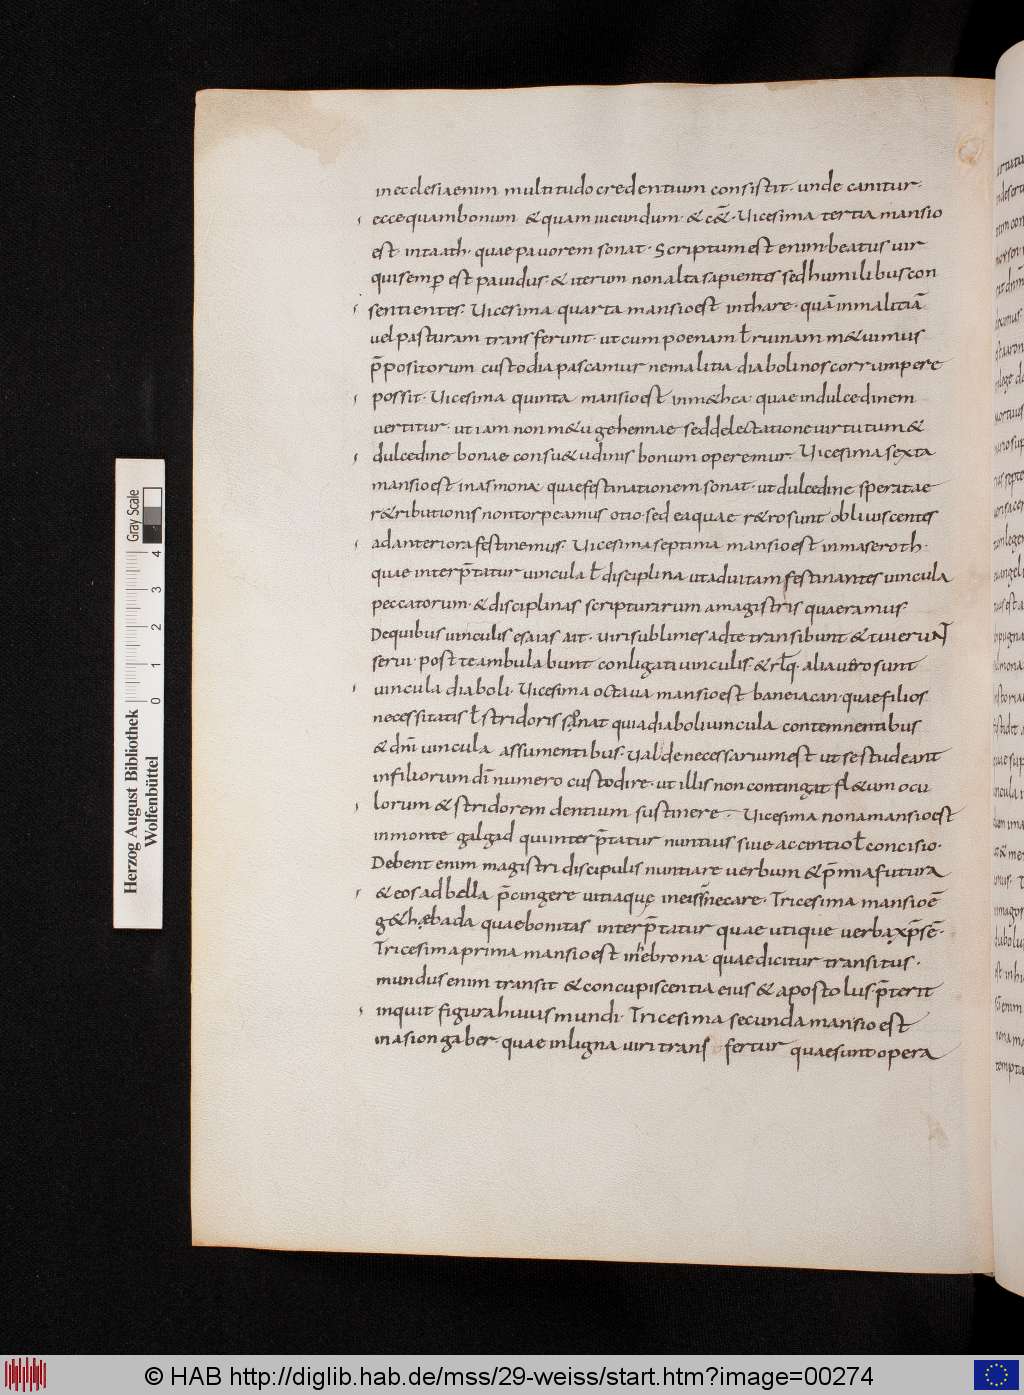 in ecclesia enim multitudo credentium consistit · unde canitur ·
ecce quam bonum & quam iucundum · & c& · Uicesima tertia mansio
est in taath · quae pauorem sonat · Scriptum est enim · beatus uir
qui semp̄ est pauidus · & iterum non alta sapientes sed humilibus con
sentientes · Uicesima quarta mansio est in thare · quā in malitiā
uel pasturam transferunt · ut cum poenam ł ruinam m&uimus
p̄positorum custodia pascamur ne malitia diaboli nos corrumpere
possit · Uicesima quinta mansio est in m&hca · quae in dulcedinem
uertitur · ut iam non m&u gehennae sed delectatione uirtutum &
dulcedine bonae consu&udinis bonum operemur · Uicesima sexta
mansio est in asmona · quae festinationem sonat · ut dulcedine speratae
r&ributionis non torpeamus otio · sed ea quae r&ro sunt obliuiscentes
ad anteriora festinemus · Uicesima septima mansio est in maseroth ·
quae interp̄tatur uincula ł disciplina ut ad uitam festinantes uincula
peccatorum · & disciplinas scripturarum a magistris quaeramus ·
De quibus uinculis esaias ait · uiri sublimes ad te transibunt & tui erunt
serui · post te ambulabunt conligati uinculis · & rłq · alia uero sunt
uincula diaboli · Uicesima octaua mansio est baneiacan · quae filios
necessitatis ł stridoris sonat quia diaboli uincula contemnentibus
& dn̄i uincula assumentibus · Ualde necessarium est ut se studeant
in filiorum dī numero custodire · ut illis non contingat fl&um ocu
lorum & stridorem dentium sustinere · Uicesima nona mansio est
in monte galgad qui interp̄tatur nuntius siue accintio ł concisio ·
Debent enim magistri discipulis nuntiare uerbum & p̄mia futura
& eos ad bella p̄cingere uitiaque in eis necare · Tricesima mansio ē
g&hębada quae bonitas interp̄tatur quae utique uerba xp̄i sē ·
Tricesima prima mansio est in hebrona · quae dicitur transitus ·
mundus enim transit & concupiscentia eius & apostolus · p̄terit
inquit figura huius mundi · Tricesima secunda mansio est
in asiongaber quae in ligna uiri transfertur quae sunt opera
Gray Scale
0 1 2 3 4
Herzog August Bibliothek
Wolfenbüttel
© HAB http://diglib.hab.de/mss/29-weiss/start.htm?image=00274